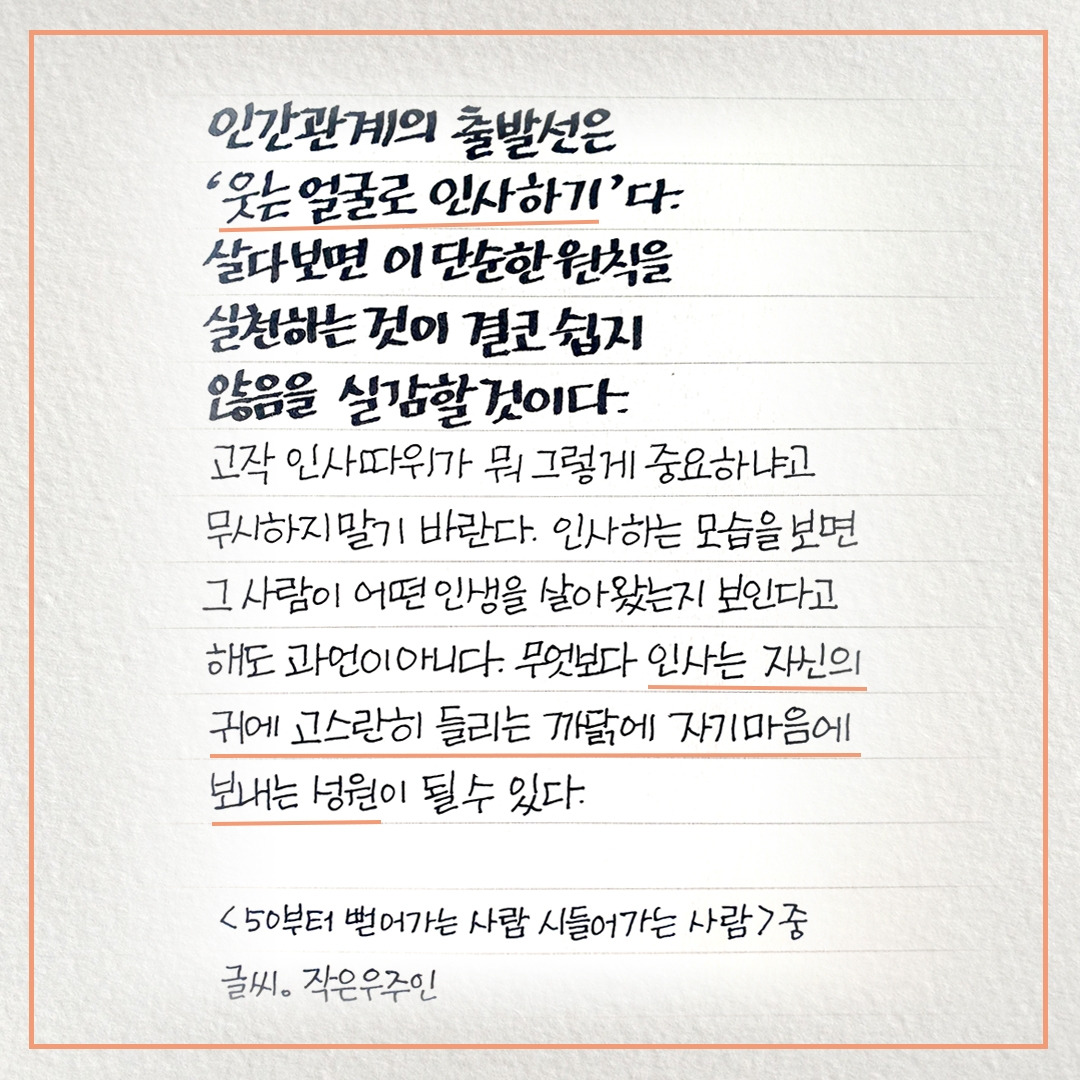 인간관계의 출발선은
‘웃는 얼굴로 인사하기’다.
살다보면 이 단순한 원칙을
실천하는 것이 결코 쉽지
않음을 실감할 것이다.
고작 인사따위가 뭐 그렇게 중요하냐고
무시하지말기 바란다. 인사하는 모습을 보면
그 사람이 어떤 인생을 살아왔는지 보인다고
해도 과언이 아니다. 무엇보다 인사는 자신의
귀에 고스란히 들리는 까닭에 자기마음에
보내는 성원이 될 수 있다.
<50부터 뻗어가는 사람 시들어가는 사람>중
글씨。작은우주인